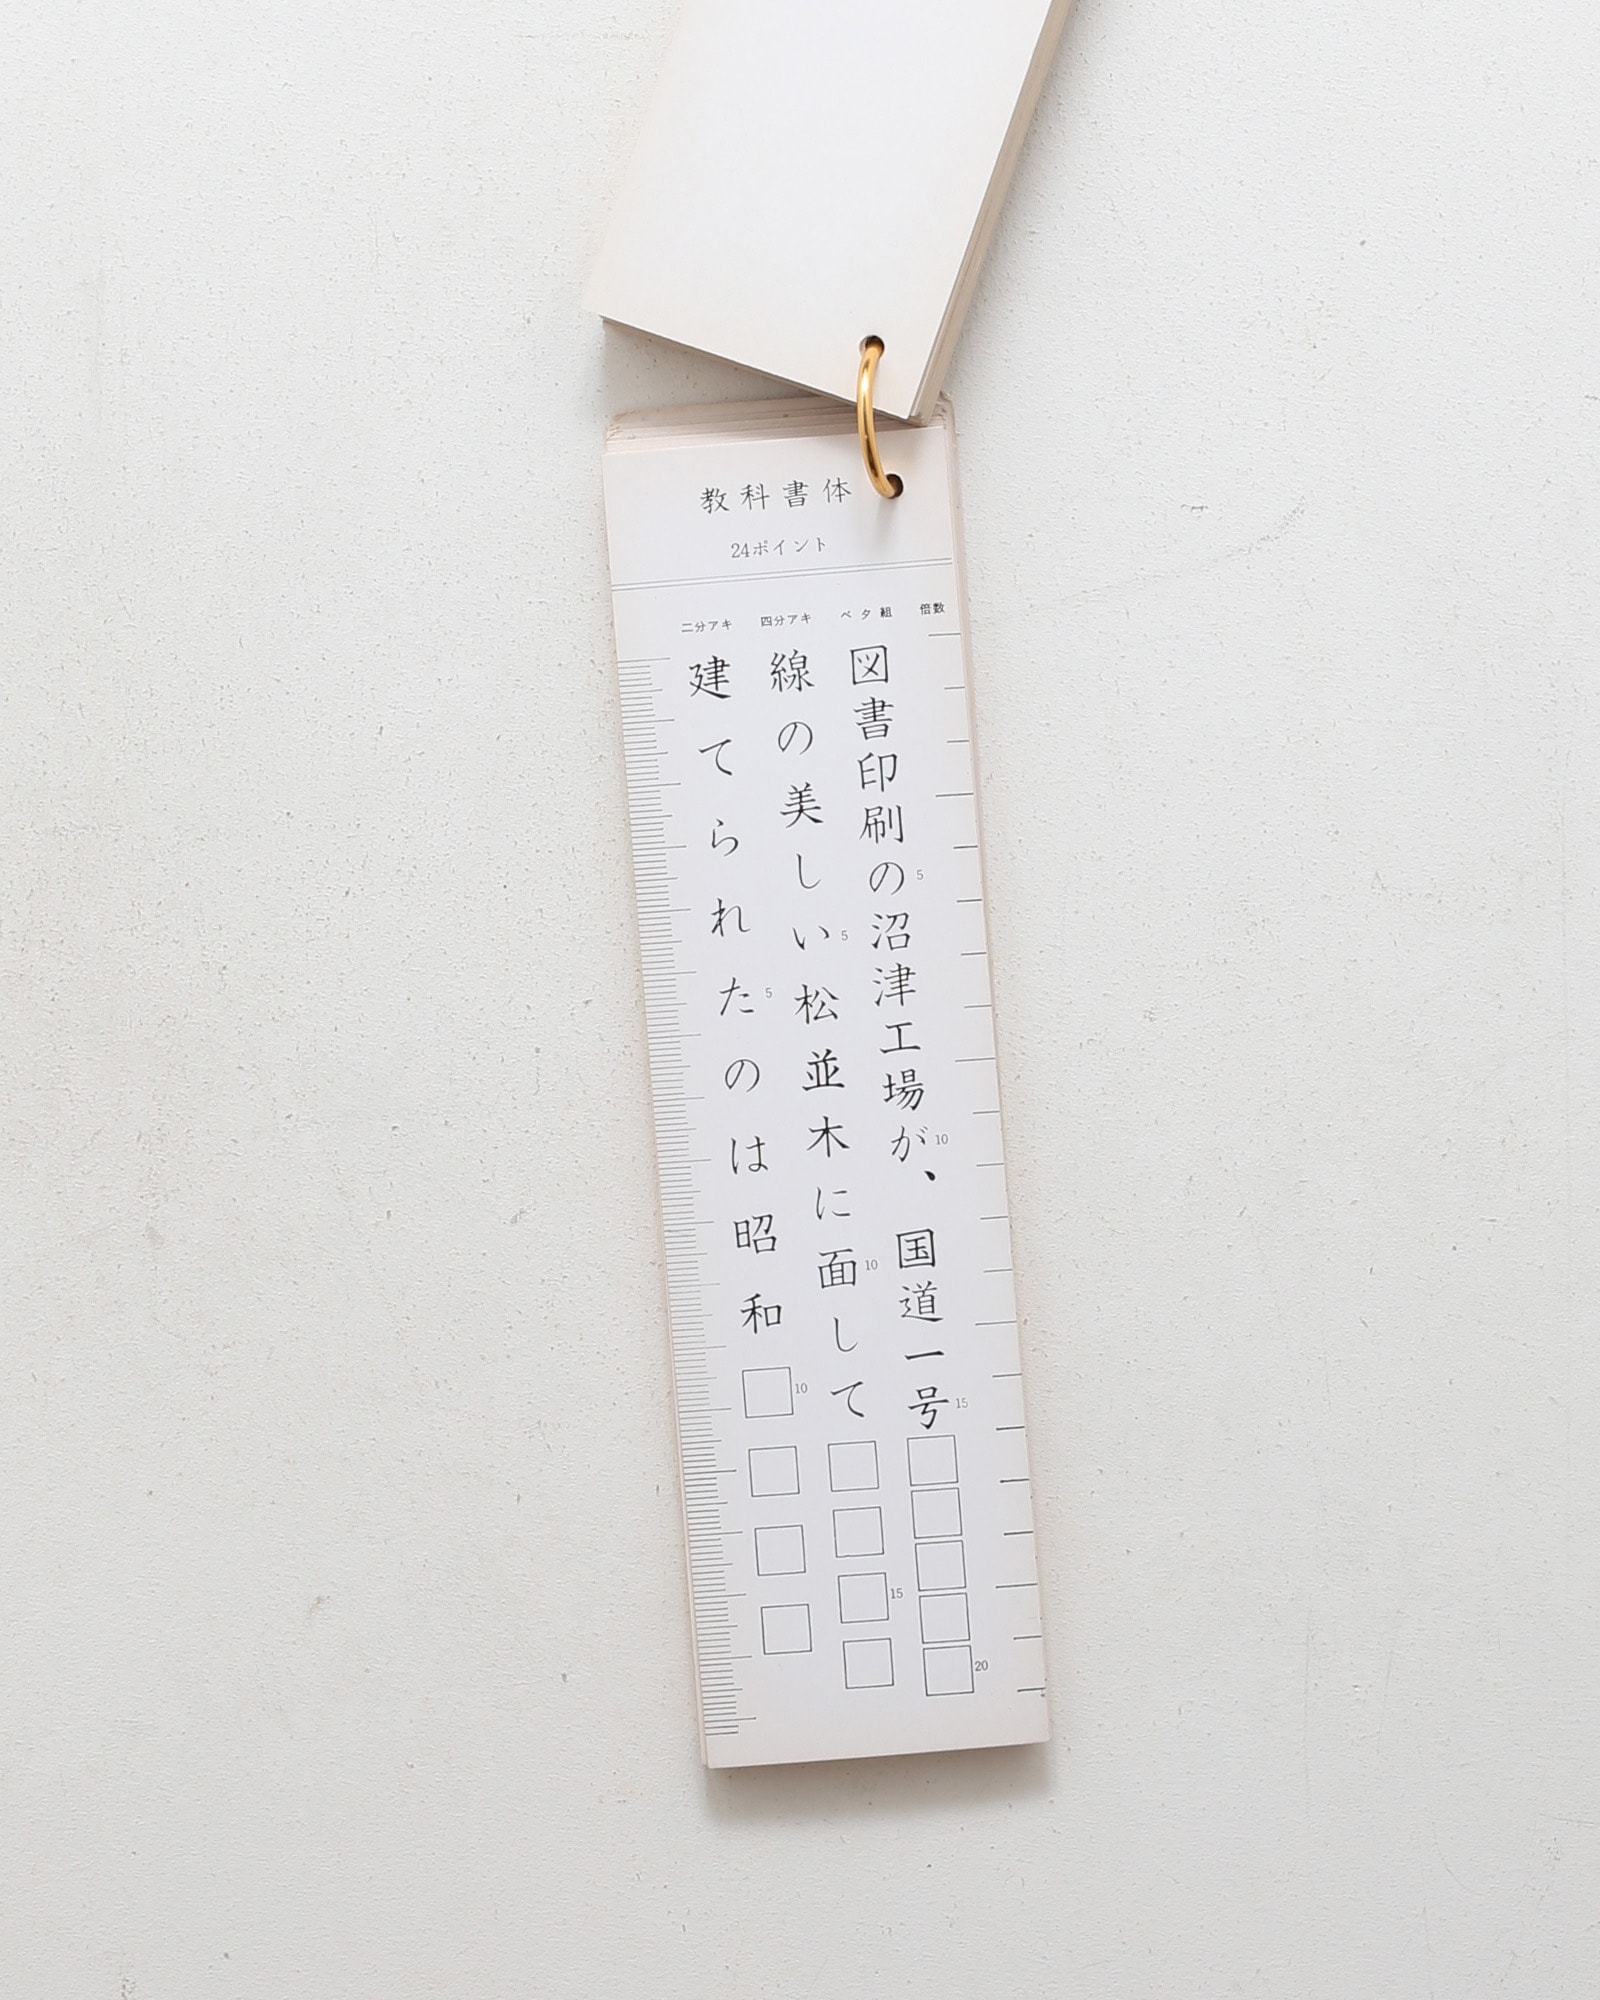 教科書体
24ポイント
倍数
ベタ組
四分アキ
二分アキ
図書印刷の沼津工場が、国道一号
5
10
15
20
線の美しい松並木に面して
5
10
15
建てられたのは昭和
5
10